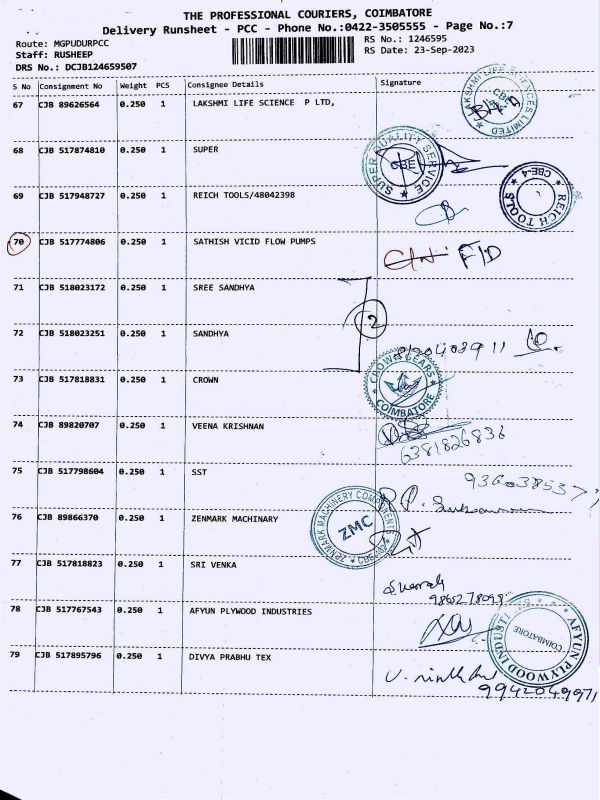 THE PROFESSIONAL COURIERS, COIMBATORE
Delivery Runsheet - PCC - Phone No.:0422-3505555 - Page No.:7
Route: MGPUDURPCC
RS No.: 1246595
Staff: RUSHEEP
RS Date: 23-Sep-2023
DRS No.: DCJB124659507
S No Consignment No Weight PCS Consignee Details Signature
67 CJB 89626564 0.250 1 LAKSHMI LIFE SCIENCE P LTD,
LAKSHMI LIFE SCIENCES LIMITED
68 CJB 517874810 0.250 1 SUPER
SUPER QUALITY SERVICE CBE
69 CJB 517948727 0.250 1 REICH TOOLS/48042398
REICH TOOLS CBE-4
70 CJB 517774806 0.250 1 SATHISH VICID FLOW PUMPS F/D
71 CJB 518023172 0.250 1 SREE SANDHYA
2
72 CJB 518023251 0.250 1 SANDHYA
73 CJB 517818831 0.250 1 CROWN
CROWN GEARS COIMBATORE
74 CJB 89820707 0.250 1 VEENA KRISHNAN
6381826836
75 CJB 517798604 0.250 1 SST
76 CJB 89866370 0.250 1 ZENMARK MACHINARY
ZENMARK MACHINERY COMPONENTS ZMC
77 CJB 517818823 0.250 1 SRI VENKA
78 CJB 517767543 0.250 1 AFYUN PLYWOOD INDUSTRIES
AFYUN PLYWOOD INDUSTRIES COIMBATORE
79 CJB 517895796 0.250 1 DIVYA PRABHU TEX
9942049971